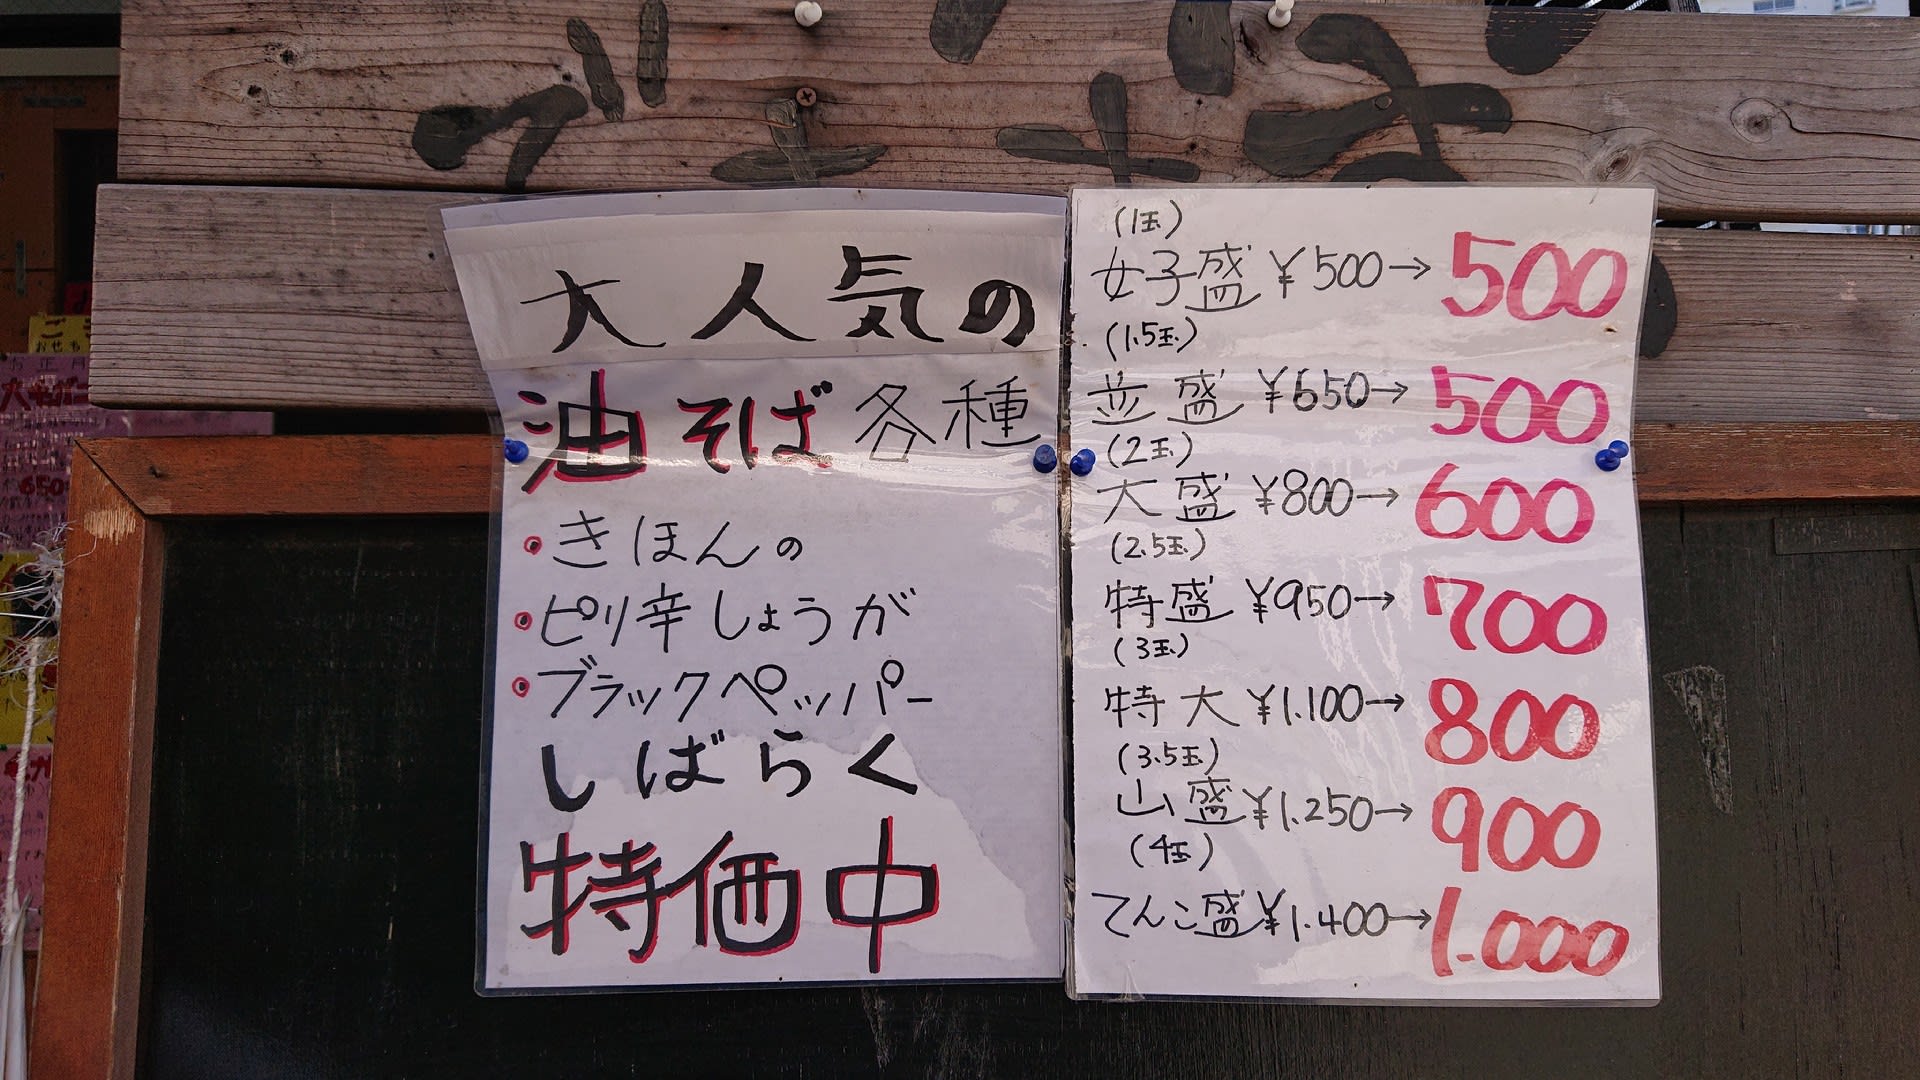 大人気の
油そば各種
・きほんの
・ピリ辛しょうが
・ブラックペッパー
しばらく
特価中
(1玉)
女子盛 ¥500→500
(1.5玉)
並盛 ¥650→500
(2玉)
大盛 ¥800→600
(2.5玉)
特盛 ¥950→700
(3玉)
特大 ¥1.100→800
(3.5玉)
山盛 ¥1.250→900
(4玉)
てんこ盛 ¥1.400→1.000